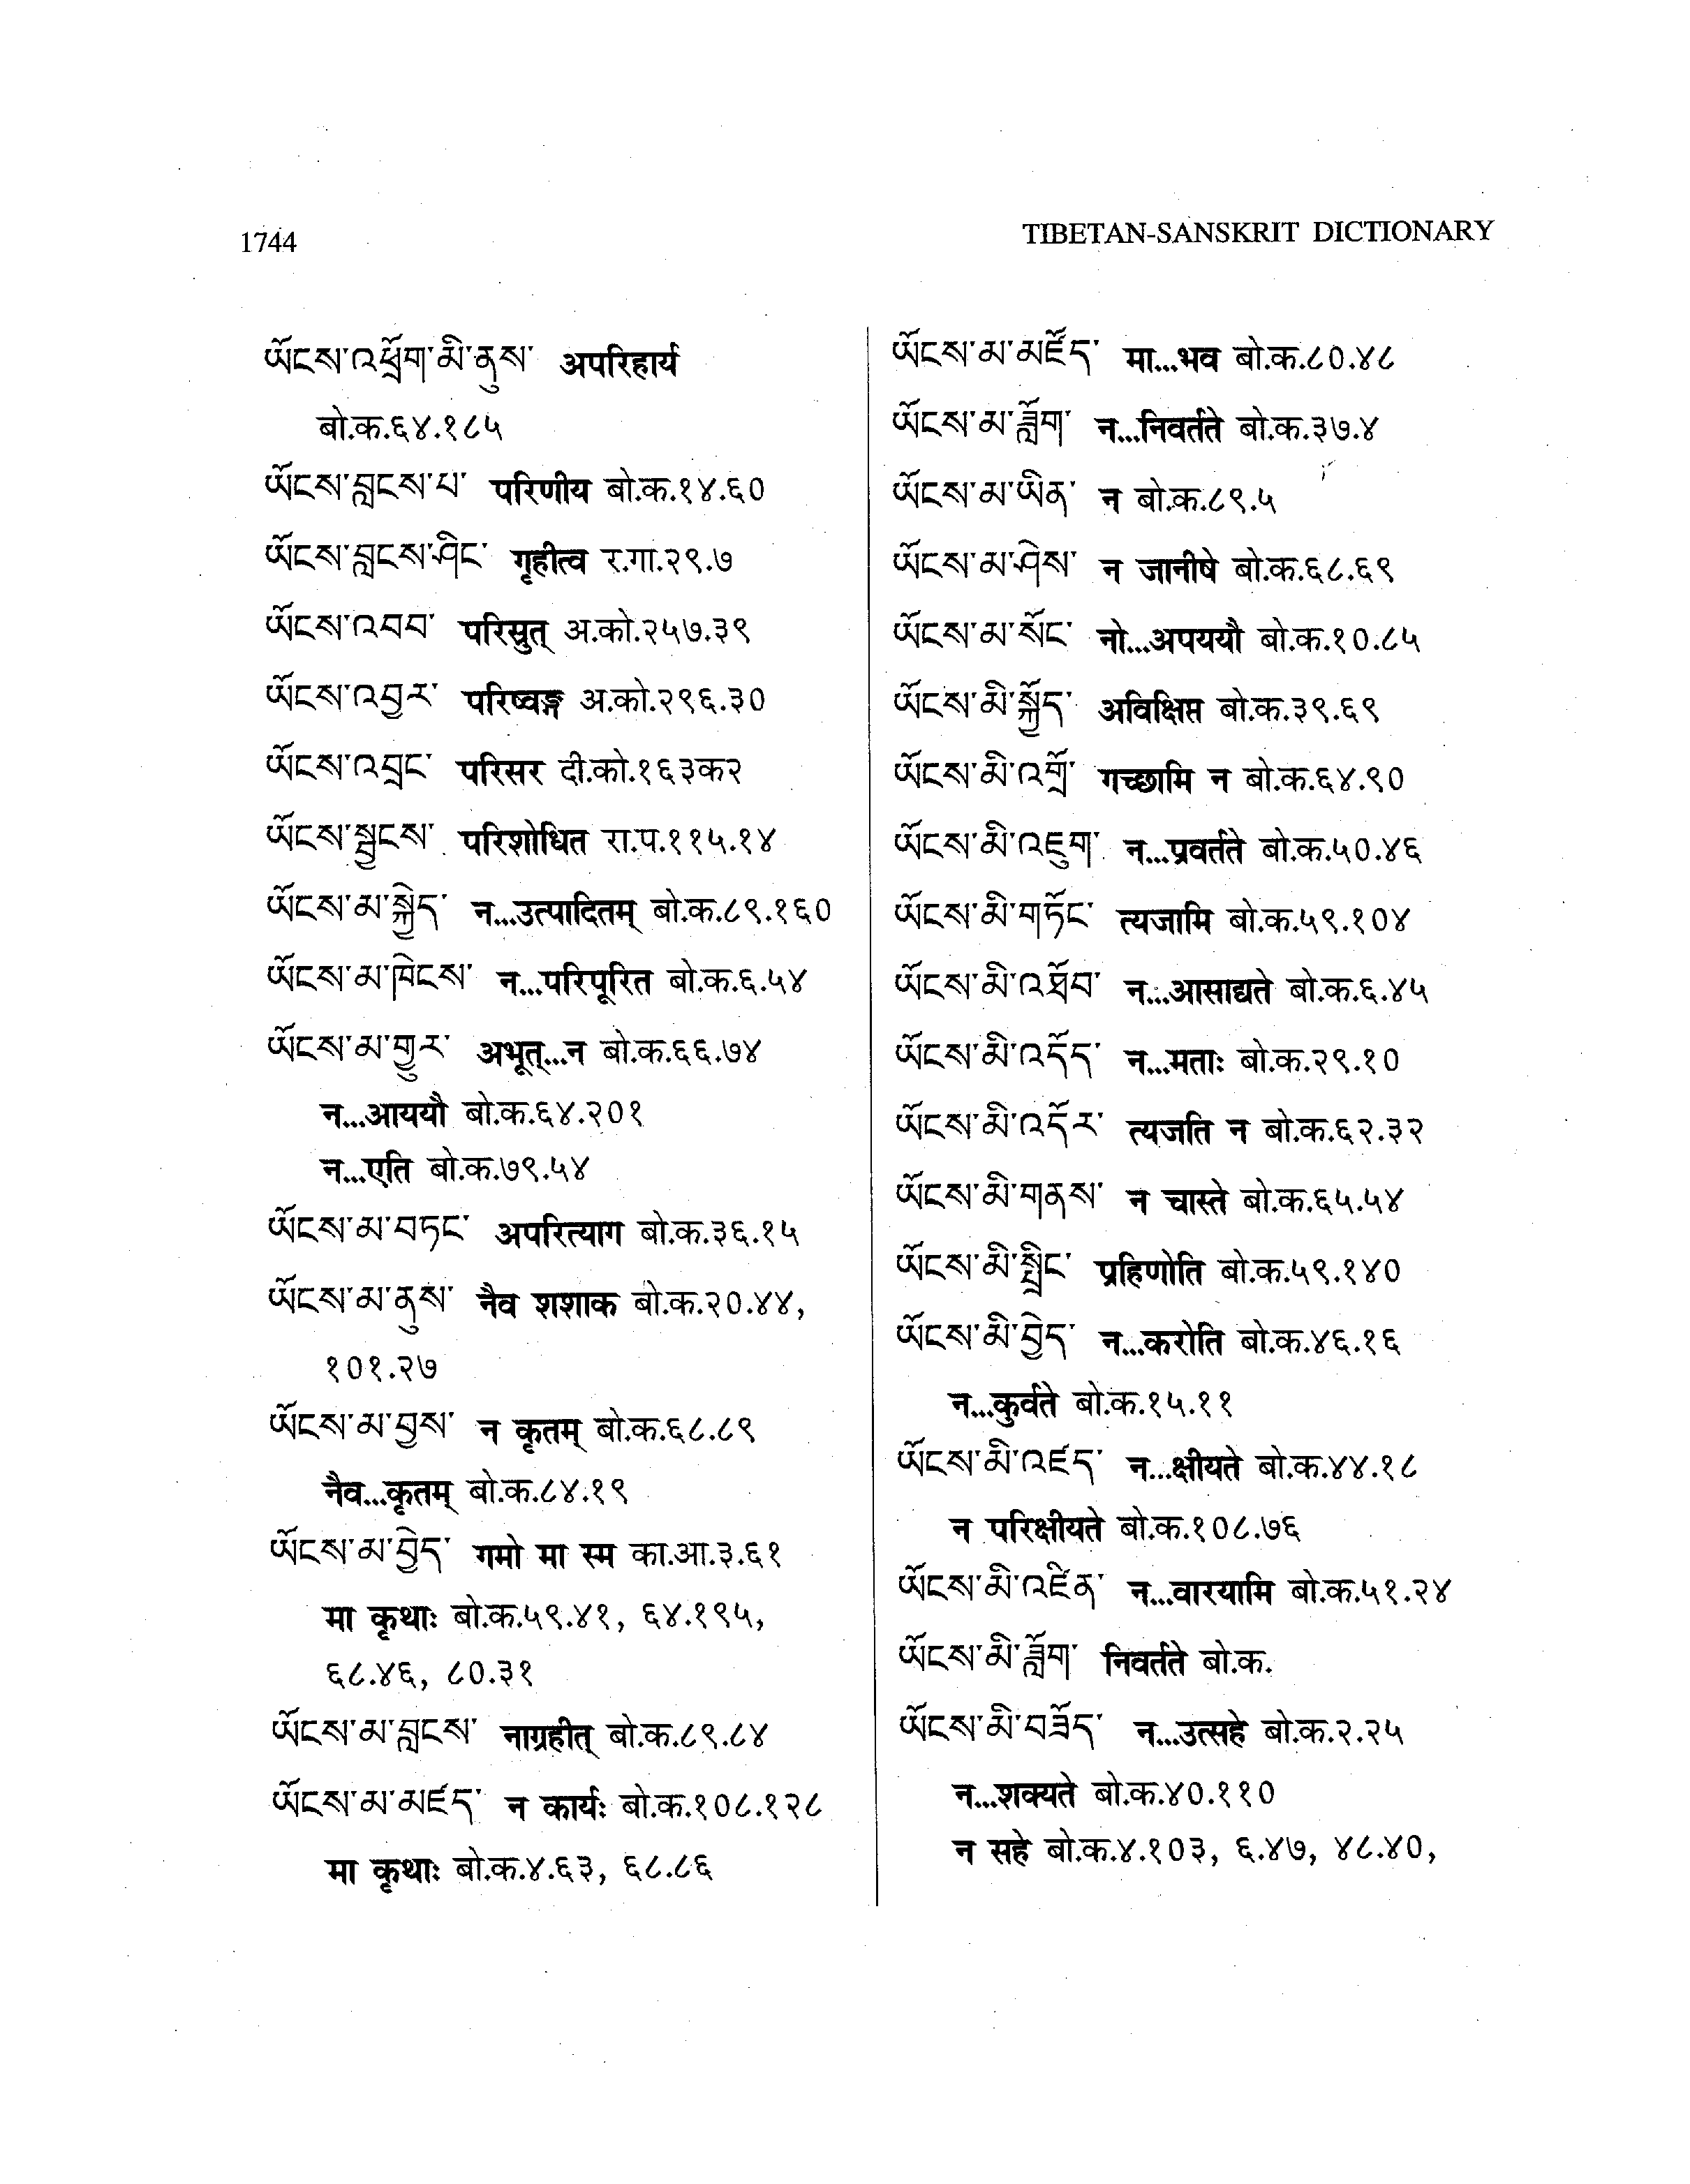 1744
TIBETAN-SANSKRIT DICTIONARY
ཡོངས་འཕྲོག་མི་ནུས་ अपरिहार्य
बो.क.६४.१८५
ཡོངས་བླངས་པ་ परिणीय बो.क.१४.६०
ཡོངས་བླངས་ཤིང་ गृहीत्व र.गा.२९.७
ཡོངས་འབབ་ परिस्रुत् अ.को.२५७.३९
ཡོངས་འབྱར་ परिष्वङ्ग अ.को.२९६.३०
ཡོངས་འབྲང་ परिसर दी.को.१६३क२
ཡོངས་སྦྱངས་ परिशोधित रा.प.११५.१४
ཡོངས་མ་སྐྱེད་ न...उत्पादितम् बो.क.८९.१६०
ཡོངས་མ་ཁེངས་ न...परिपूरित बो.क.६.५४
ཡོངས་མ་གྱུར་ अभूत्...न बो.क.६६.७४
न...आययौ बो.क.६४.२०१
न...एति बो.क.७९.५४
ཡོངས་མ་བཏང་ अपरित्याग बो.क.३६.१५
ཡོངས་མ་ནུས་ नैव शशाक बो.क.२०.४४,
१०१.२७
ཡོངས་མ་བྱས་ न कृतम् बो.क.६८.८९
नैव...कृतम् बो.क.८४.१९
ཡོངས་མ་བྱེད་ गमो मा स्म का.आ.३.६१
मा कृथाः बो.क.५९.४१, ६४.१९५,
६८.४६, ८०.३१
ཡོངས་མ་བླངས་ नाग्रहीत् बो.क.८९.८४
ཡོངས་མ་མཛད་ न कार्यः बो.क.१०८.१२८
मा कृथाः बो.क.४.६३, ६८.८६
ཡོངས་མ་མཛོད་ मा...भव बो.क.८०.४८
ཡོངས་མ་ཟློག་ न...निवर्तते बो.क.३७.४
ཡོངས་མ་ཡིན་ न बो.क.८९.५
ཡོངས་མ་ཤེས་ न जानीषे बो.क.६८.६९
ཡོངས་མ་སོང་ नो...अपययौ बो.क.१०.८५
ཡོངས་མི་སྐྱོད་ अविक्षिप्त बो.क.३९.६९
ཡོངས་མི་འགྲོ་ गच्छामि न बो.क.६४.९०
ཡོངས་མི་འཇུག་ न...प्रवर्तते बो.क.५०.४६
ཡོངས་མི་གཏོང་ त्यजामि बो.क.५९.१०४
ཡོངས་མི་འཐོབ་ न...आसाद्यते बो.क.६.४५
ཡོངས་མི་འདོད་ न...मताः बो.क.२९.१०
ཡོངས་མི་འདོར་ त्यजति न बो.क.६२.३२
ཡོངས་མི་གནས་ न चास्ते बो.क.६५.५४
ཡོངས་མི་སྤྲིང་ प्रहिणोति बो.क.५९.१४०
ཡོངས་མི་བྱེད་ न...करोति बो.क.४६.१६
न...कुर्वते बो.क.१५.११
ཡོངས་མི་འཛད་ न...क्षीयते बो.क.४४.१८
न परिक्षीयते बो.क.१०८.७६
ཡོངས་མི་འཛིན་ न...वारयामि बो.क.५१.२४
ཡོངས་མི་ཟློག་ निवर्तते बो.क.
ཡོངས་མི་བཟོད་ न...उत्सहे बो.क.२.२५
न...शक्यते बो.क.४०.११०
न सहे बो.क.४.१०३, ६.४७, ४८.४०,